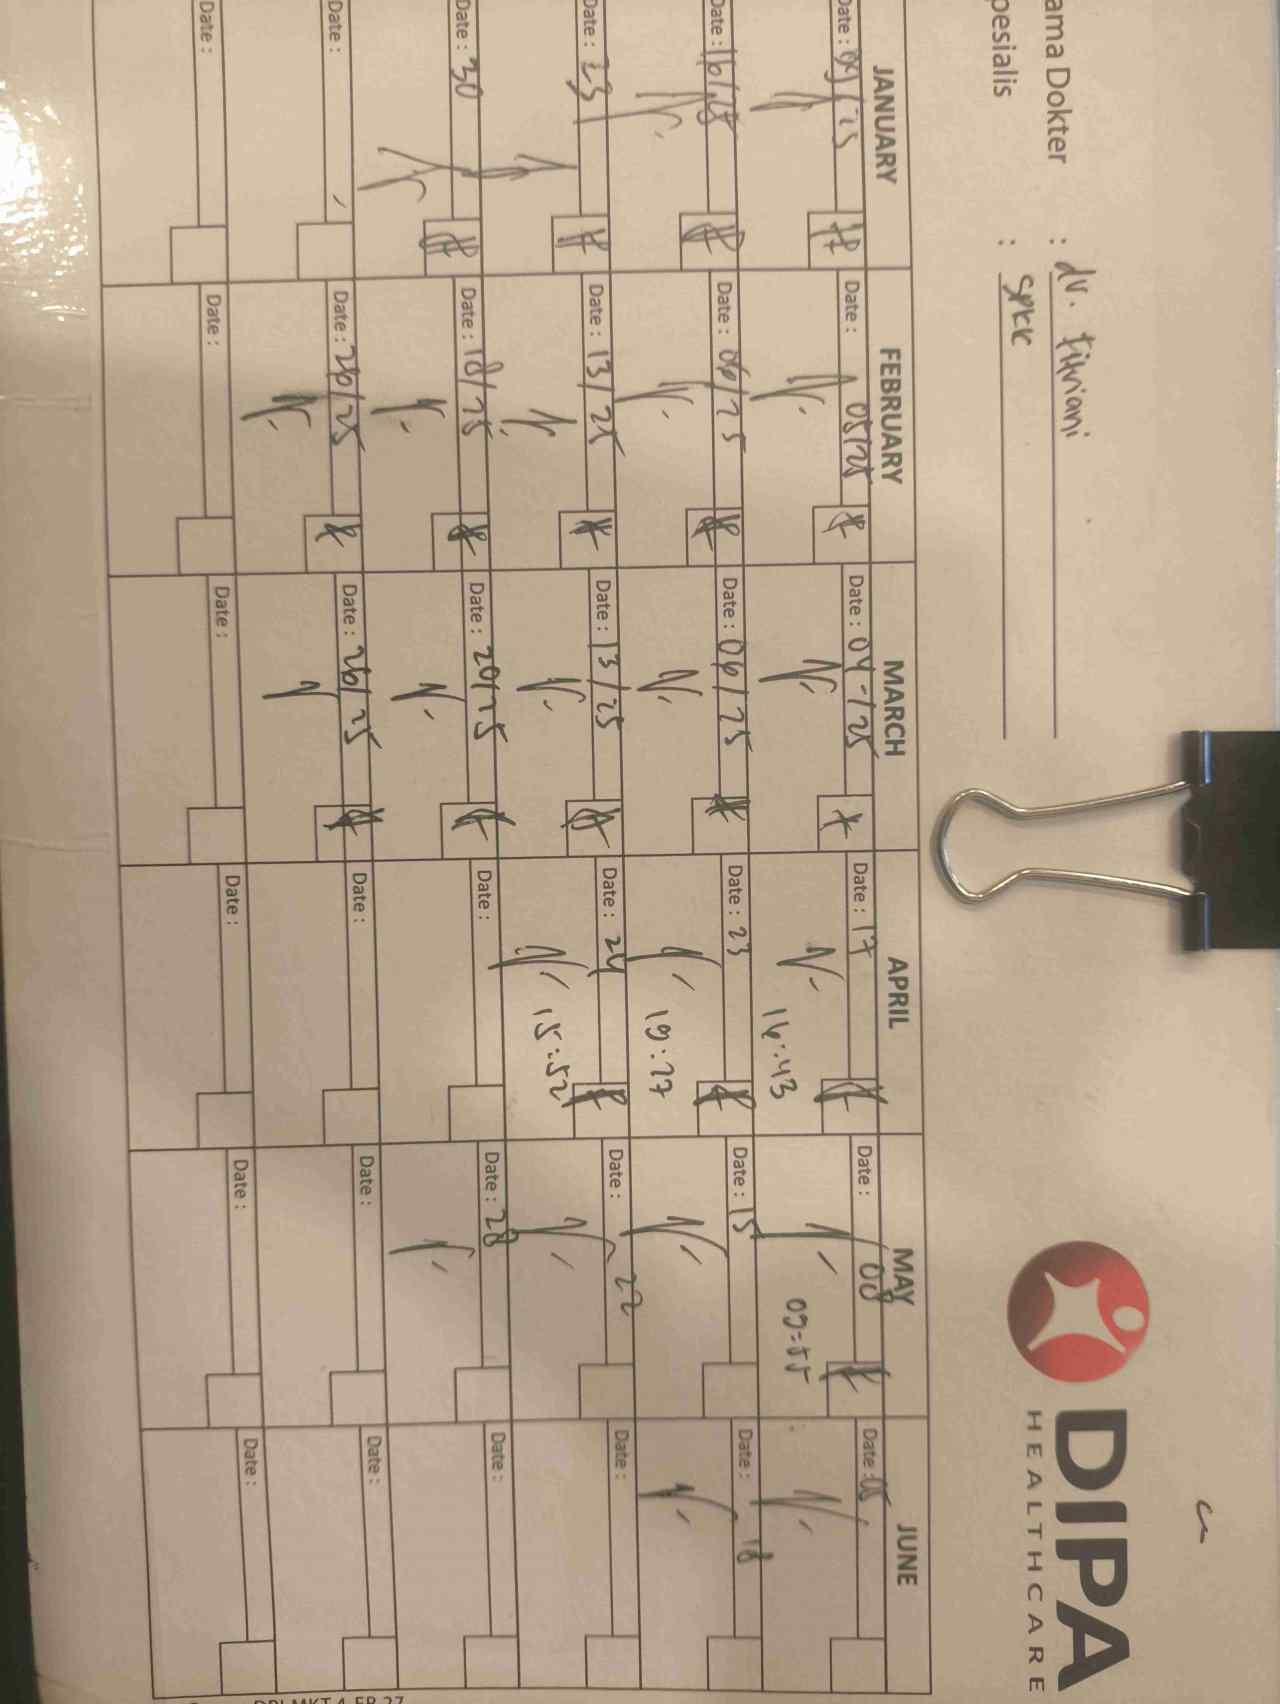 DIPA
HEALTHCARE
ama Dokter : dr. Fitriani
pesialis : SPKK
JANUARY FEBRUARY MARCH APRIL MAY JUNE
Date : 09/25 Date : 05/25 Date : 04-/25 Date : 17 Date : 08 Date : 05
16:43 09:55
Date : 16/25 Date : 06/25 Date : 06/25 Date : 23 Date : 15 Date : 18
19:27
Date : 23 Date : 13/25 Date : 13/25 Date : 24 Date : 22 Date :
15:52
Date : 30 Date : 18/25 Date : 20/25 Date : Date : 28 Date :
Date : Date : 26/25 Date : 26/25 Date : Date : Date :
Date : Date : Date : Date : Date : Date :